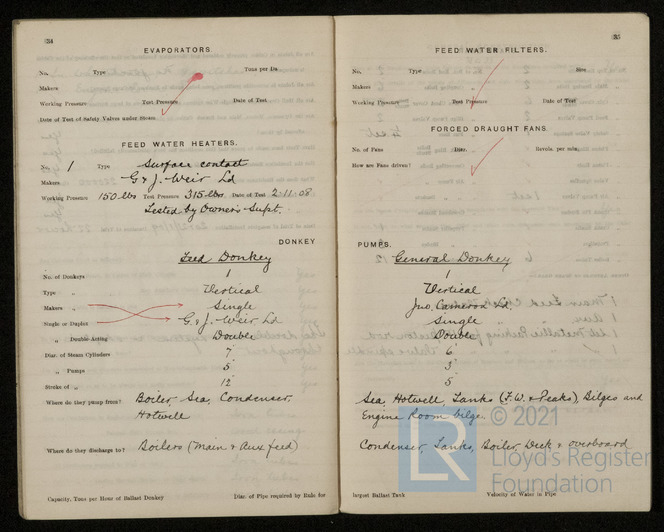 34
EVAPORATORS
No. Type Tons per Da
Makers
Working Pressure Test Pressure Date of Test
Date of Test of Safety Valves under Steam
FEED WATER HEATERS.
No. 1 Type Surface contact
Makers G & J. Weir Ld
Working Pressure 150 lbs Test Pressure 315 lbs Date of Test 2.11.08
Tested by Owner's Supt.
DONKEY
Feed Donkey
No. of Donkeys 1
Type " Vertical
Makers " Single
Single or Duplex G. & J. Weir Ld
" Double-Acting Double
Diar. of Steam Cylinders 7"
" Pumps 5"
Stroke of " 12"
Where do they pump from? Boiler, Sea, Condenser,
Hotwell
Where do they discharge to? Boilers (Main & Aux feed)
Capacity, Tons per Hour of Ballast Donkey Diar. of Pipe required by Rule for
35
FEED WATER FILTERS.
No. Type Size
Makers
Working Pressure Test Pressure Date of Test
FORCED DRAUGHT FANS
No. of Fans Diar. Revols. per min.
How are Fans driven?
PUMPS.
General Donkey
1
Vertical
Jno. Cameron Ld.
Single
Double
6"
3"
5"
Sea, Hotwell, Tanks (F.W. & Peaks), Bilges and
Engine Room bilge.
Condenser, Tanks, Boiler, Deck & overboard
largest Ballast Tank Velocity of Water in Pipe
LR © 2021
Lloyd's Register
Foundation